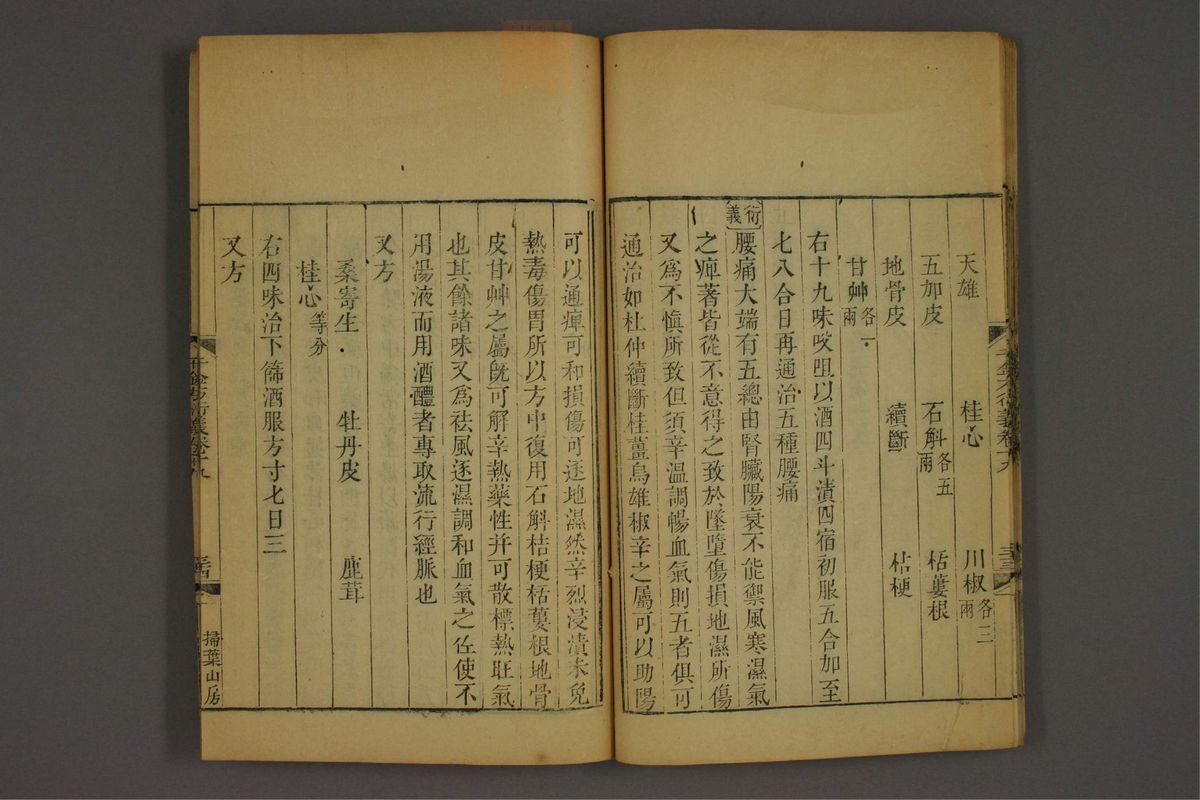 天雄　桂心　川椒各三兩
五加皮　石斛各五兩　栝蔞根
地骨皮　續斷　桔梗
甘艸各一兩
右十九味㕮咀以酒四斗漬四宿初服五合加至
七八合日再通治五種腰痛
衍義腰痛大端有五總由腎臟陽衰不能禦風寒濕氣
之痺著皆從不意得之致於墜墮傷損地濕所傷
又為不慎所致但須辛溫調暢血氣則五者俱可
通治如杜仲續斷桂薑烏雄椒辛之屬可以助陽
可以通痺可和損傷可逐地濕然辛烈浸漬未免
熱毒傷胃所以方中復用石斛桔梗栝蔞根地骨
皮甘艸之屬旣可解辛熱藥性并可散標熱旺氣
也其餘諸味又為祛風逐濕調和血氣之佐使不
用湯液而用酒醴者專取流行經脈也
又方
桑寄生　牡丹皮　鹿茸
桂心等分
右四味治下篩酒服方寸七日三
又方
千金方衍義卷十九
三十四
掃葉山房